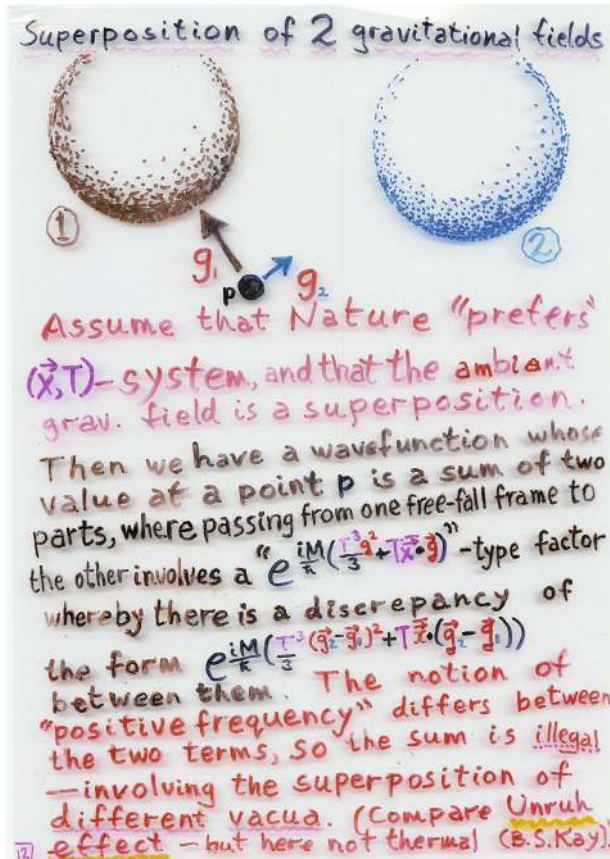 Superposition of 2 gravitational fields
1
2
g₁
p
g₂
Assume that Nature "prefers"
(x⃗,T)-system, and that the ambient
grav. field is a superposition.
Then we have a wavefunction whose
value at a point p is a sum of two
parts, where passing from one free-fall frame to
the other involves a "e^{iM/ħ(T³/3 g⃗² + Tx⃗•g⃗)}"-type factor
whereby there is a discrepancy of
the form e^{iM/ħ(T³/3 (g⃗₂-g⃗₁)² + Tx⃗•(g⃗₂-g⃗₁))}
between them. The notion of
"positive frequency" differs between
the two terms, so the sum is illegal
—involving the superposition of
different vacua. (Compare Unruh
12 effect — but here not thermal (B.S.Kay).)